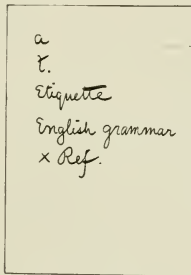 a
t.
Etiquette
English grammar
× Ref.